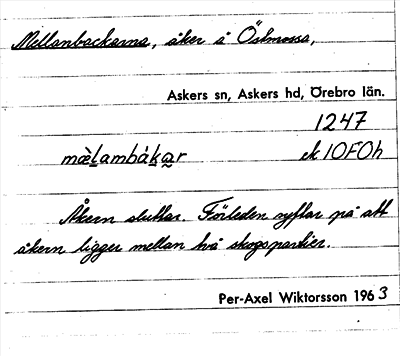 Mellanbackarna, åker å Östmossa,
Askers sn, Askers hd, Örebro län.
1247
mæ̀lambákar ek 10F0h
Åkern sluttar. Förleden syftar på att
åkern ligger mellan två skogspartier.
Per-Axel Wiktorsson 1963